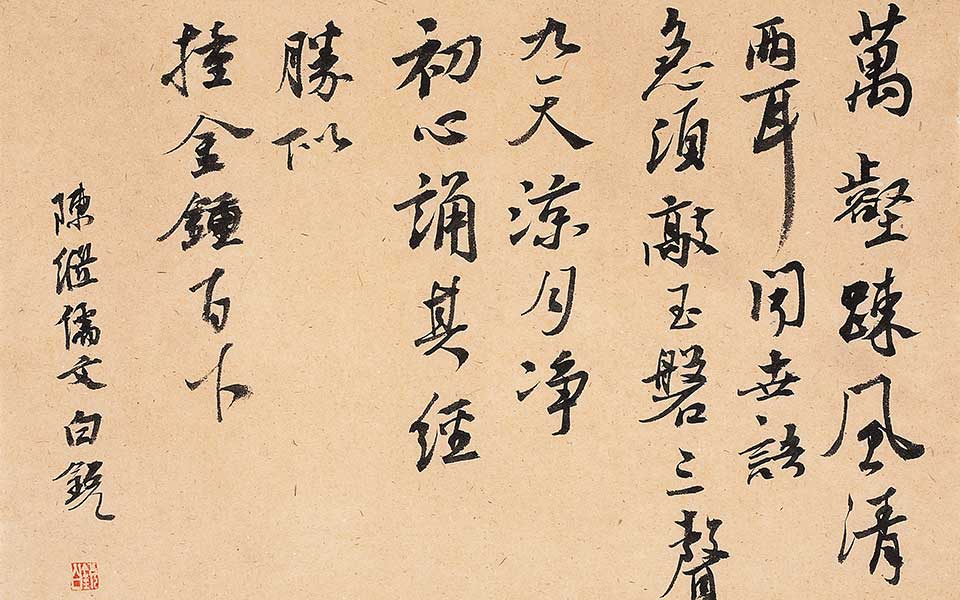 萬壑踈風清
兩耳聞世語
急須敲玉磐三聲
九天涼月净
初心誦其經
勝似
撞金鍾百下
陳繼儒文白銳